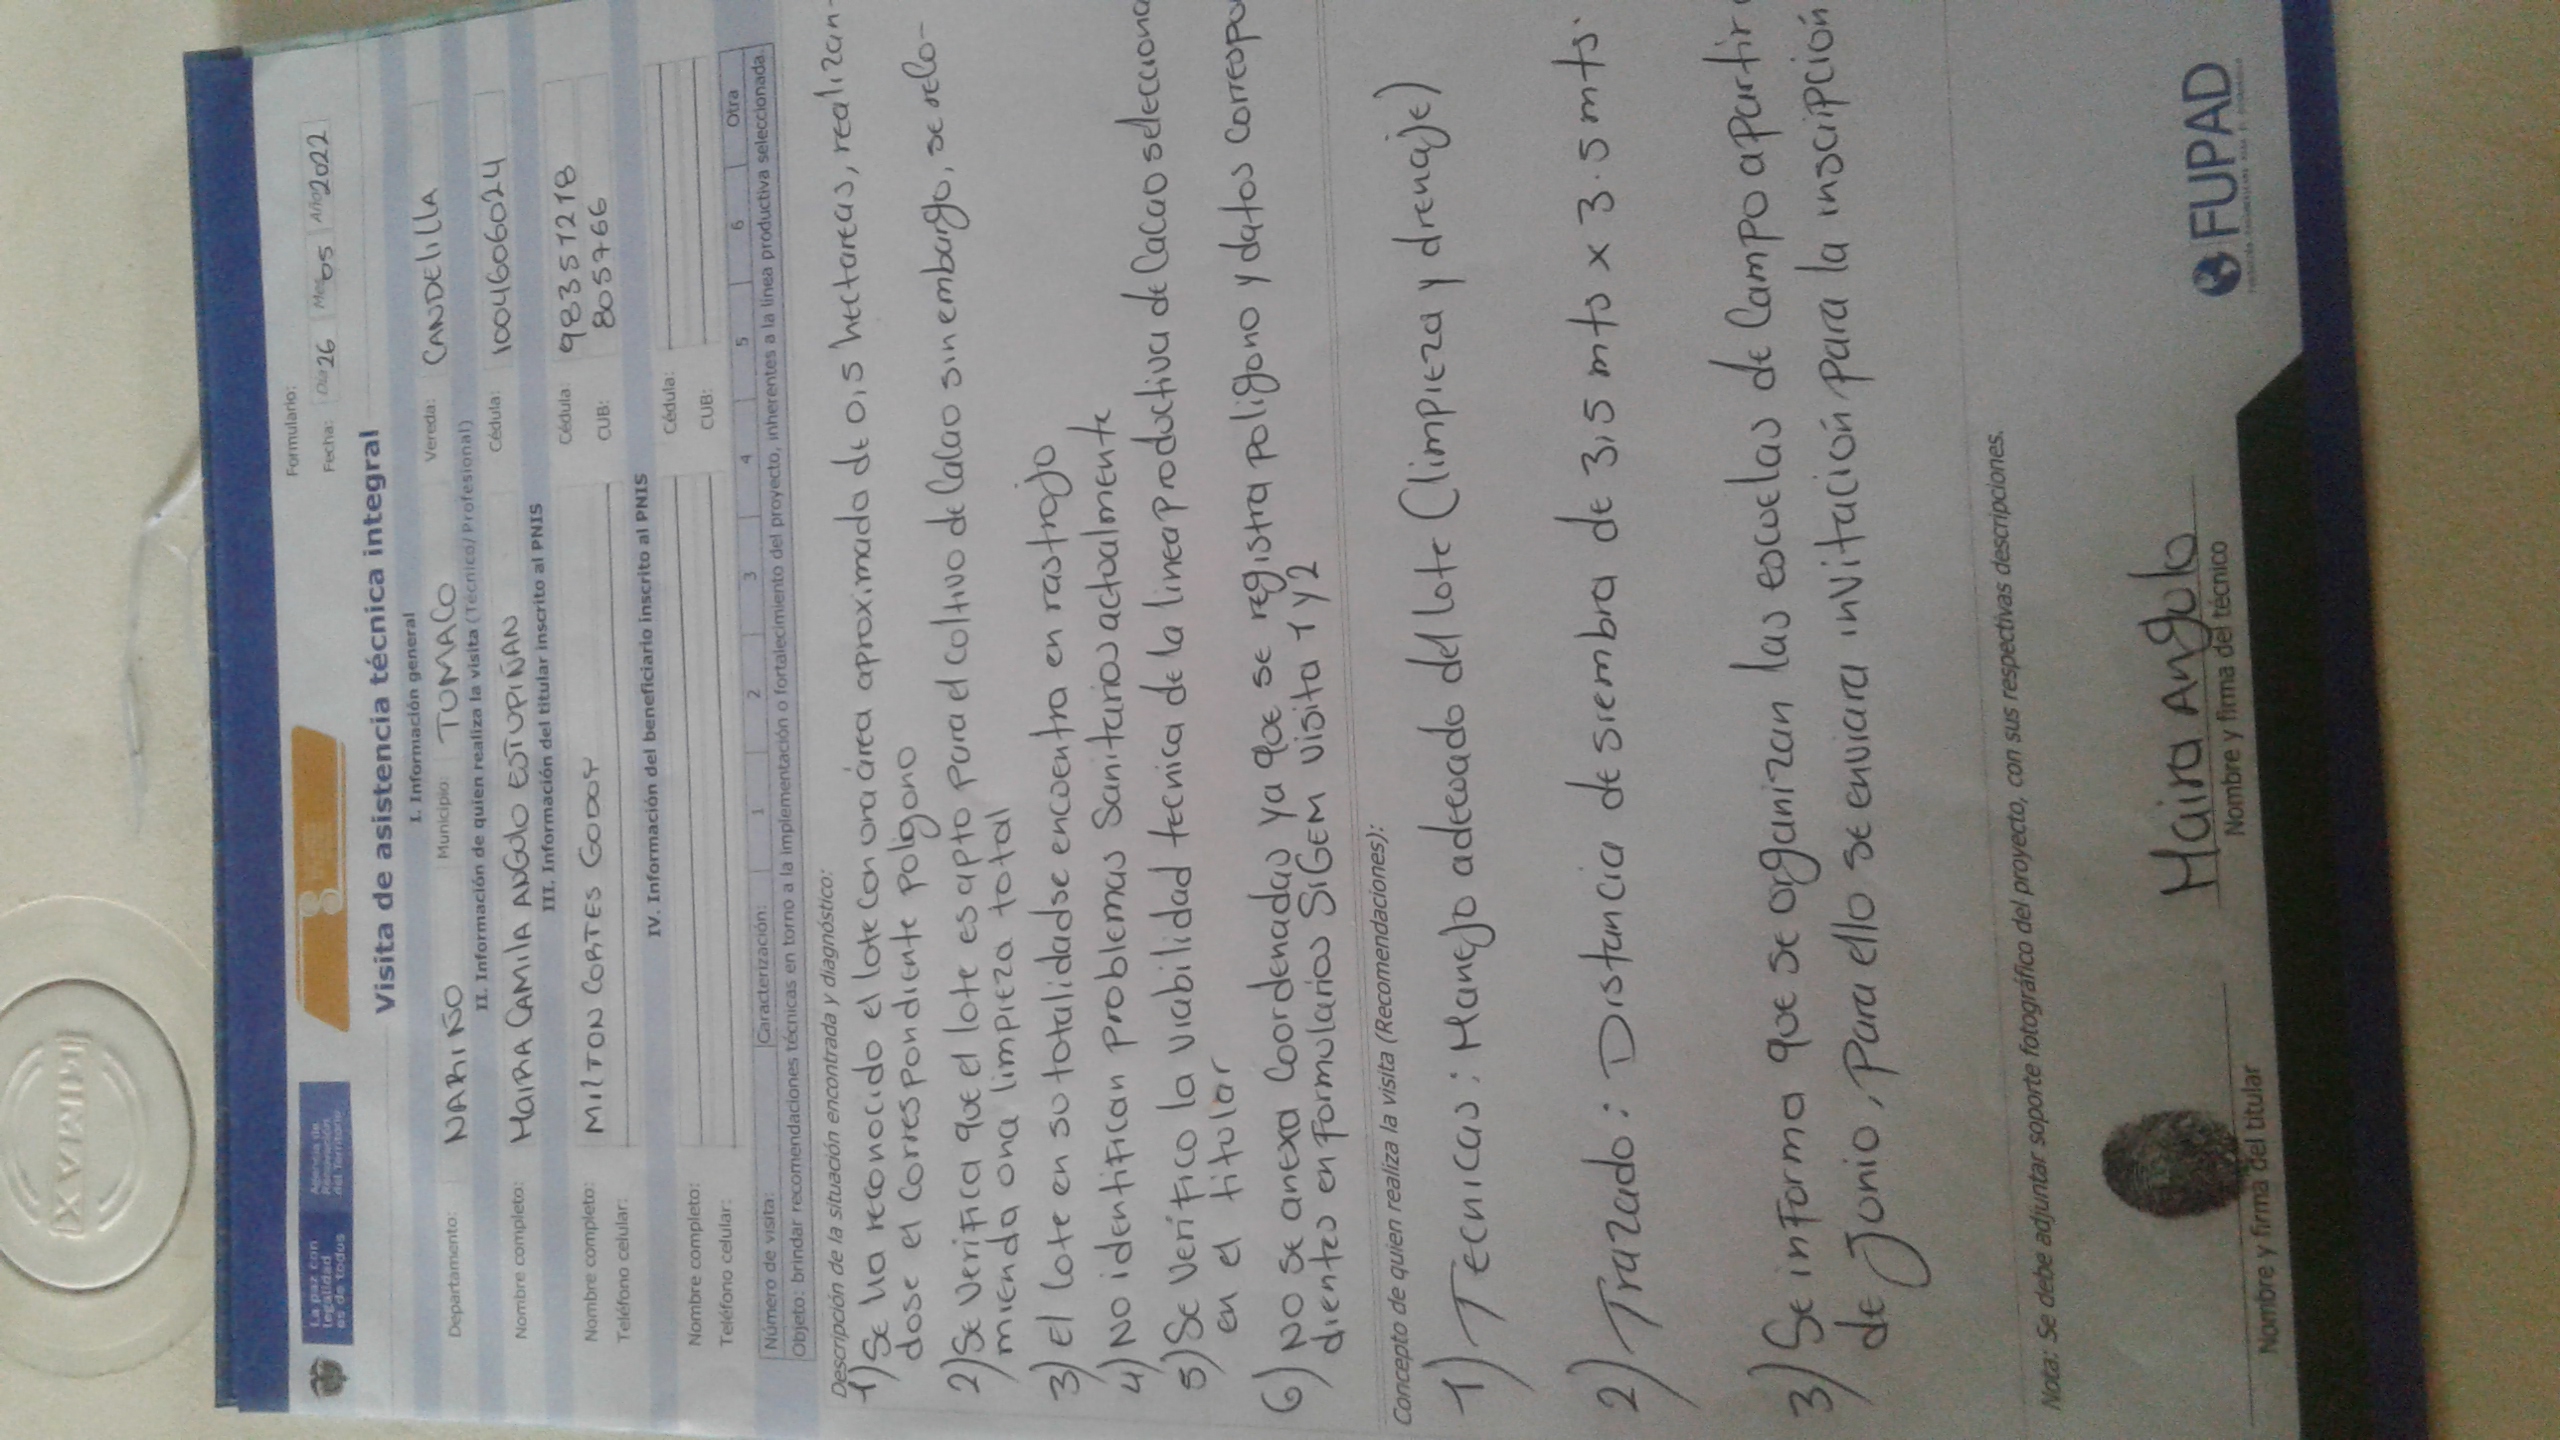 XVAWIC
La paz con
legalidad
es de todos
Agencia de
Renovación
del Territorio
Formulario:
Fecha: Día 26 Mes 05 Año 2022
Visita de asistencia técnica integral
I. Información general
Departamento: NARIÑO Municipio: TUMACO Vereda: CANDElillA
II. Información de quien realiza la visita (Técnico/Profesional)
Nombre completo: MAIRA CAMIlA ANGUlO ESTUPIÑAN Cédula: 1004606024
III. Información del titular inscrito al PNIS
Nombre completo: MIlTON CORTES GODOY Cédula: 983571218
Teléfono celular: CUB: 805766
IV. Información del beneficiario inscrito al PNIS
Nombre completo: Cédula:
Teléfono celular: CUB:
Número de visita: Caracterización: 1 2 3 4 5 6 Otra
Objeto: brindar recomendaciones técnicas en torno a la implementación o fortalecimiento del proyecto, inherentes a la línea productiva seleccionada.
Descripción de la situación encontrada y diagnóstico:
1) Se ha reconocido el lote con una área aproximada de 0,5 hectareas, realizan-
dose el correspondiente poligono
2) Se verifica que el lote es apto para el cultivo de Cacao sin embargo, se reco-
mienda una limpieza total
3) el lote en su totalidad se encuentra en rastrojo
4) No identifican problemas Sanitarios actualmente
5) Se verifico la viabilidad tecnica de la linea productiva de Cacao selecciona
en el titular
6) No se anexa Coordenadas ya que se registra poligono y datos correspon
dientes en formularios SIGEM visita 1 y 2
Concepto de quien realiza la visita (Recomendaciones):
1) Tecnicas: Manejo adecuado del lote (limpieza y drenaje)
2) Trazado: Distancia de siembra de 3,5 mts x 3.5 mts.
3) Se informa que se organizan las escuelas de Campo apartir
de Junio, para ello se enviara invitación para la inscipción
Nota: Se debe adjuntar soporte fotográfico del proyecto, con sus respectivas descripciones.
Maira Angulo
Nombre y firma del titular Nombre y firma del técnico
FUPAD